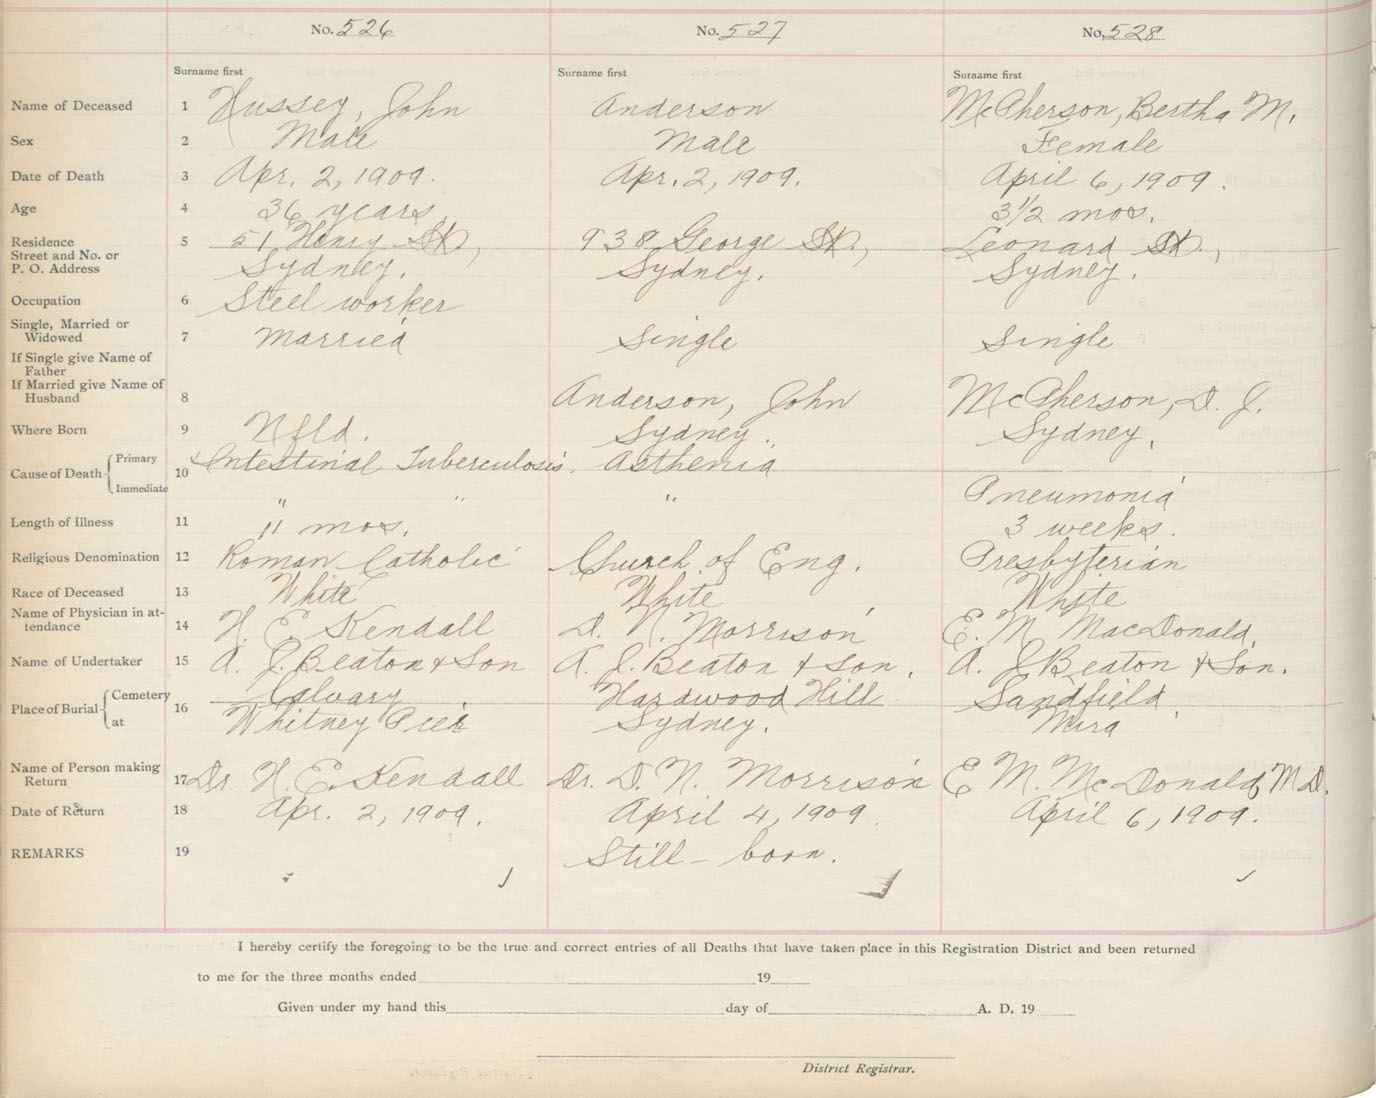 No. 526 No. 527 No. 528
Surname first Surname first Surname first
Name of Deceased 1 Hussey, John Anderson McPherson, Bertha M.
Sex 2 Male Male Female
Date of Death 3 Apr. 2, 1909. Apr. 2, 1909. April 6, 1909.
Age 4 36 years, 3 1/2 mos.
Residence 5 51 Henry St., 938 George St., Leonard St.,
Street and No. or
P. O. Address Sydney. Sydney. Sydney.
Occupation 6 Steel worker
Single, Married or
Widowed 7 Married Single Single
If Single give Name of
Father
If Married give Name of
Husband 8 Anderson, John McPherson, D. J.
Where Born 9 Nfld. Sydney. Sydney.
Cause of Death 10 Primary Intestinal Tuberculosis. Asthenia
Immediate " " " Pneumonia
Length of Illness 11 11 mos. 3 weeks.
Religious Denomination 12 Roman Catholic Church of Eng. Presbyterian
Race of Deceased 13 White White White
Name of Physician in at-
tendance 14 H. E. Kendall D. N. Morrison E. M. MacDonald,
Name of Undertaker 15 A. J. Beaton & Son A. J. Beaton & Son. A. J. Beaton & Son.
Place of Burial 16 Cemetery Calvary Hardwood Hill Sandfield
at Whitney Pier Sydney. Mira
Name of Person making
Return 17 Dr. H. E. Kendall Dr. D. N. Morrison E. M. McDonald, M.D.
Date of Return 18 Apr. 2, 1909. April 4, 1909. April 6, 1909.
REMARKS 19 Still-born.
I hereby certify the foregoing to be the true and correct entries of all Deaths that have taken place in this Registration District and been returned
to me for the three months ended 19
Given under my hand this day of A. D. 19
District Registrar.